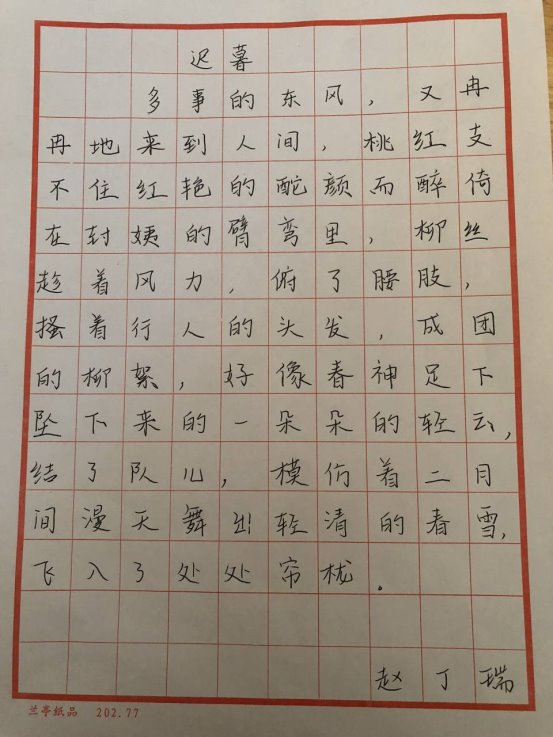 迟暮
多事的东风，又冉
冉地来到人间，桃红支
不住红艳的酡颜而醉倚
在封姨的臂弯里，柳丝
趁着风力，俯了腰肢，
搔着行人的头发，成团
的柳絮，好像春神足下
坠下来的一朵朵的轻云，
结了队儿，模仿着二月
间漫天舞出轻清的春雪，
飞入了处处帘栊。
赵丁瑞
兰亭纸品 202.77